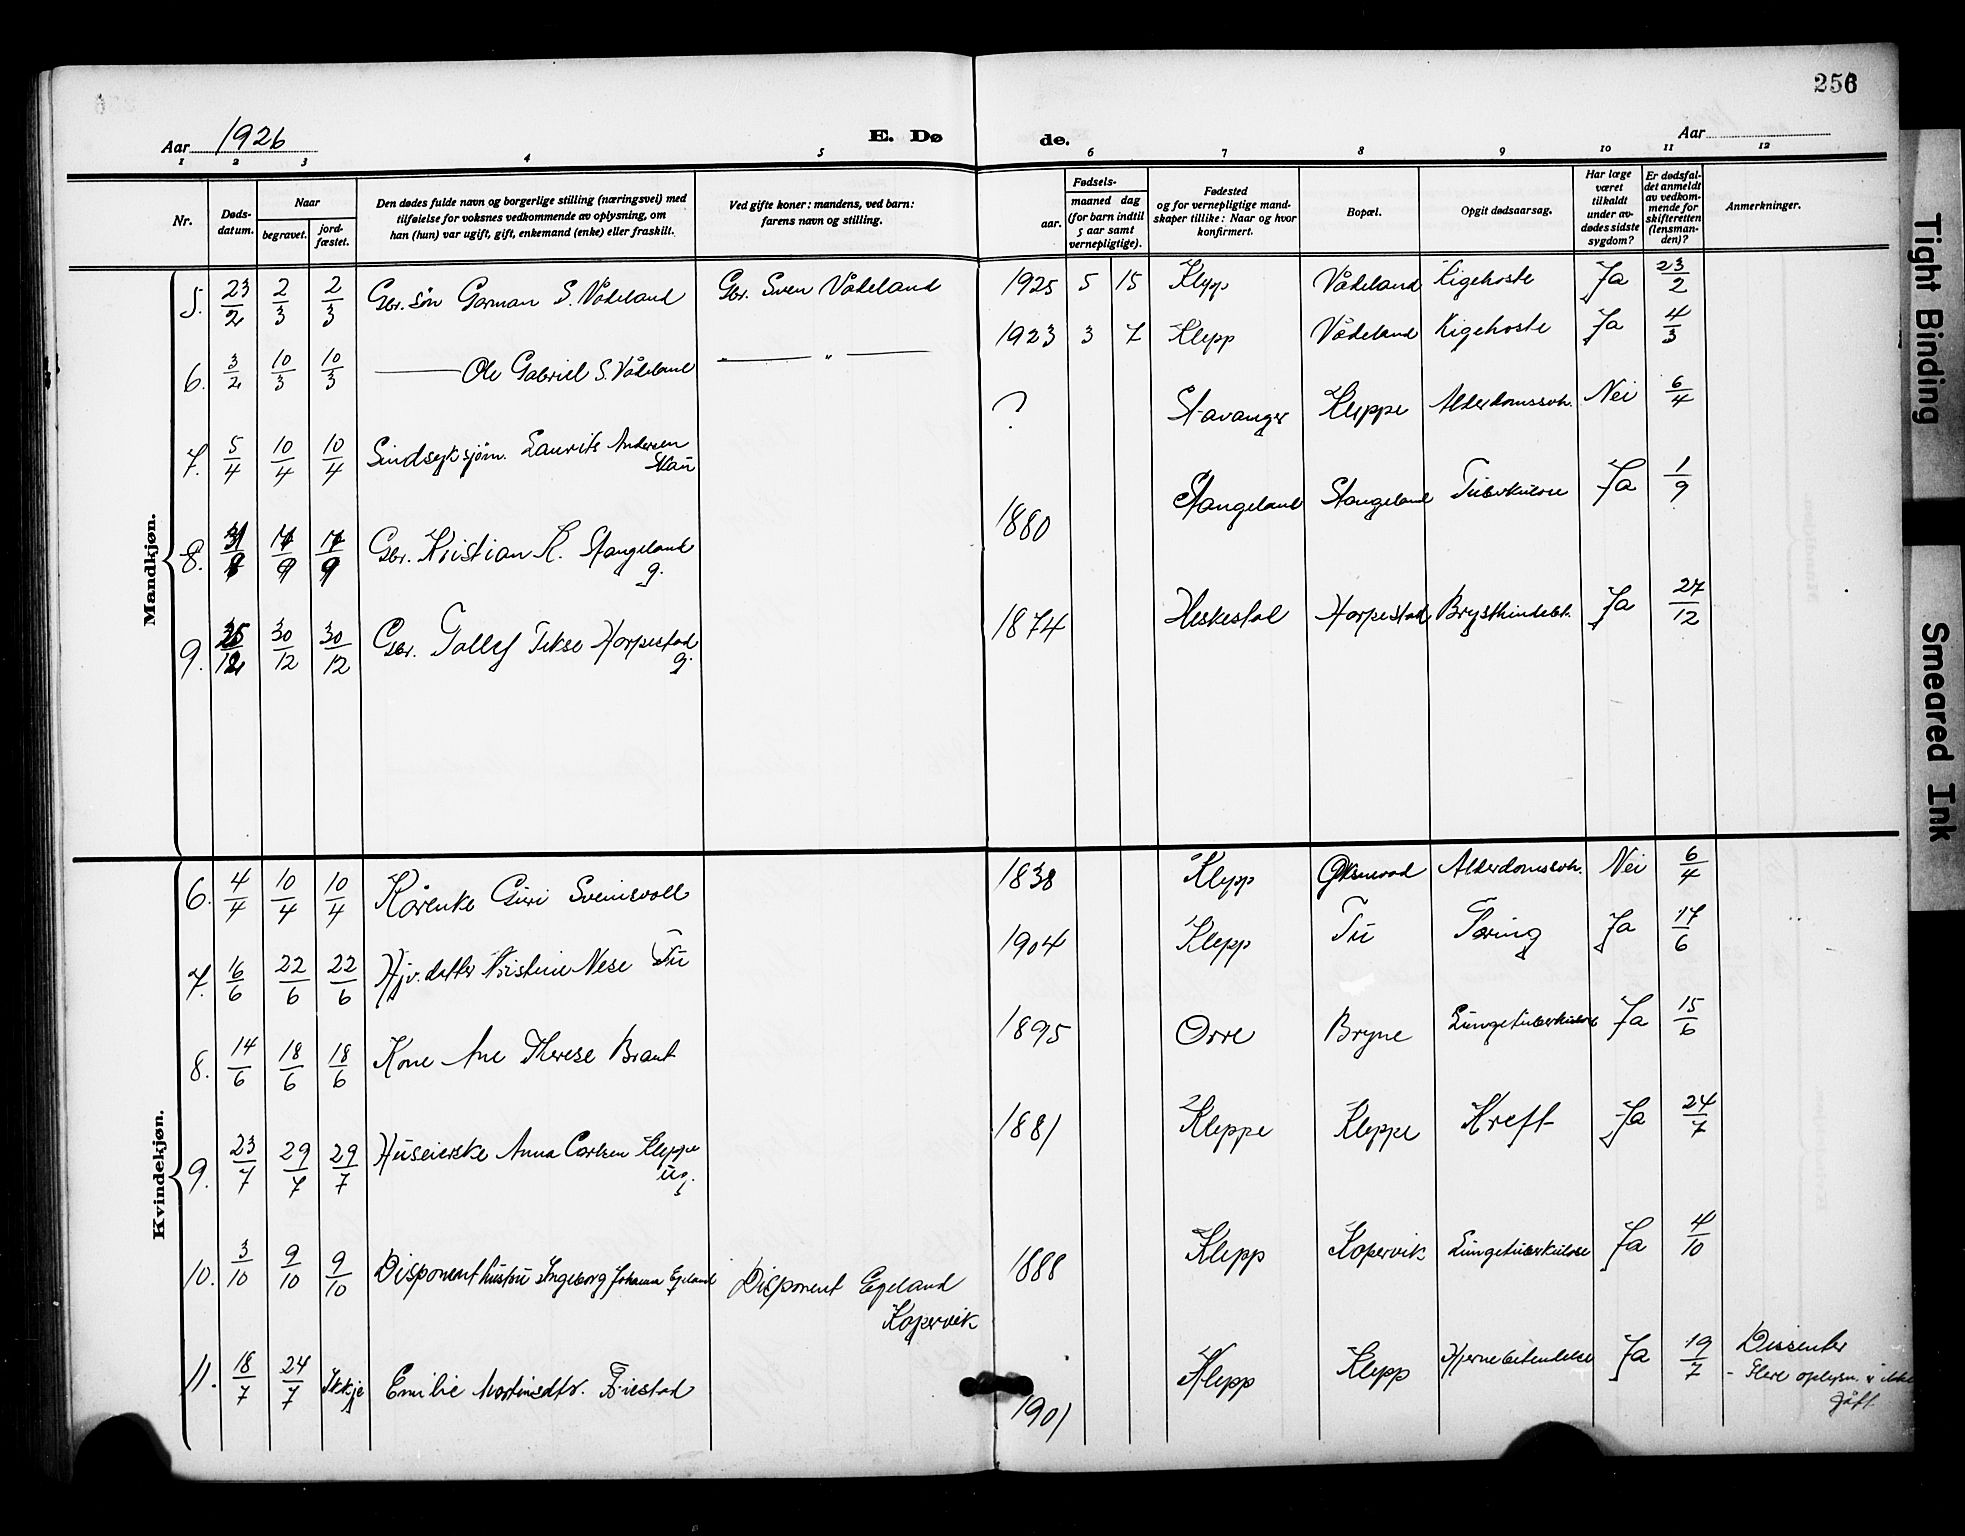 256
Aar 1926
E. Dø de.
Aar
1 2 3 4 5 6 7 8 9 10 11 12
Nr.
Døds-datum.
Naar
begravet.
jord-fæstet.
Den dødes fulde navn og borgerlige stilling (næringsvei) med
tilføielse for voksnes vedkommende av oplysning, om
han (hun) var ugift, gift, enkemand (enke) eller fraskilt.
Ved gifte koner: mandens, ved barn:
farens navn og stilling.
Fødsels-
aar.
maaned dag
(for barn indtil
5 aar samt
vernepligtige).
Fødested
og for vernepligtige mand-
skaper tillike: Naar og hvor
konfirmert.
Bopæl.
Opgit dødsaarsag.
Har læge
været
tilkaldt
under av-
dødes sidste
sygdom?
Er dødsfal-
det anmeldt
av vedkom-
mende for
skifteretten
(lensman-
den)?
Anmerkninger.
Mandkjøn.
5. 23/2 2/3 2/3 Gbr. søn Garman S. Vådeland Gbr. Sven Vådeland 1925 5 15 Klepp Vådeland Kigehoste Ja 23/2
6. 3/2 10/3 10/3 — Ole Gabriel S. Vådeland — " — 1923 3 7 Klepp Vådeland Kigehoste Ja 4/3
7. 5/4 10/4 10/4 Sindsyk sjøm. Laurits Andersen ? Stavanger Kleppe Alderdomssvh. Nei 6/4
8. 9 9 Gbr. Kristian K. Stangeland 1880 Stangeland Stangeland Tuberkulose Ja 1/9
g.
9. 30/12 30/12 Gbr. Tollef Tekse Horpestad 1874 Heskestad Horpestad Brysthindebt. Ja 27/12
g.
Kvindekjøn.
6. 4/4 10/4 10/4 Kårenke Guri Sveinsvoll 1838 Klepp Øksnevad Alderdomssvh. Nei 6/4
7. 16/6 22/6 22/6 Hjv. datter Kristine Nese Tu 1904 Klepp Tu Tæring Ja 17/6
8. 14/6 18/6 18/6 Kone Ane Therese Braut 1895 Orre Bryne Lungetuberkulose Ja 15/6
9. 23/7 29/7 29/7 Huseierske Anna Carlsen Kleppe 1881 Kleppe Kleppe Kreft Ja 24/7
ug.
10. 3/10 9/10 9/10 Disponent hustru Ingeborg Johanna Egeland Disponent Egeland 1888 Klepp Kopervik Lungetuberkulose Ja 4/10
Kopervik
11. 18/7 24/7 Ikkje Emilie Martinsdtr. Friestad 1901 Klepp Klepp Hjernebetendelse Ja 19/7 Dissenter
- Flere oplysn. ikke
gått.
Tight Binding
Smeared Ink